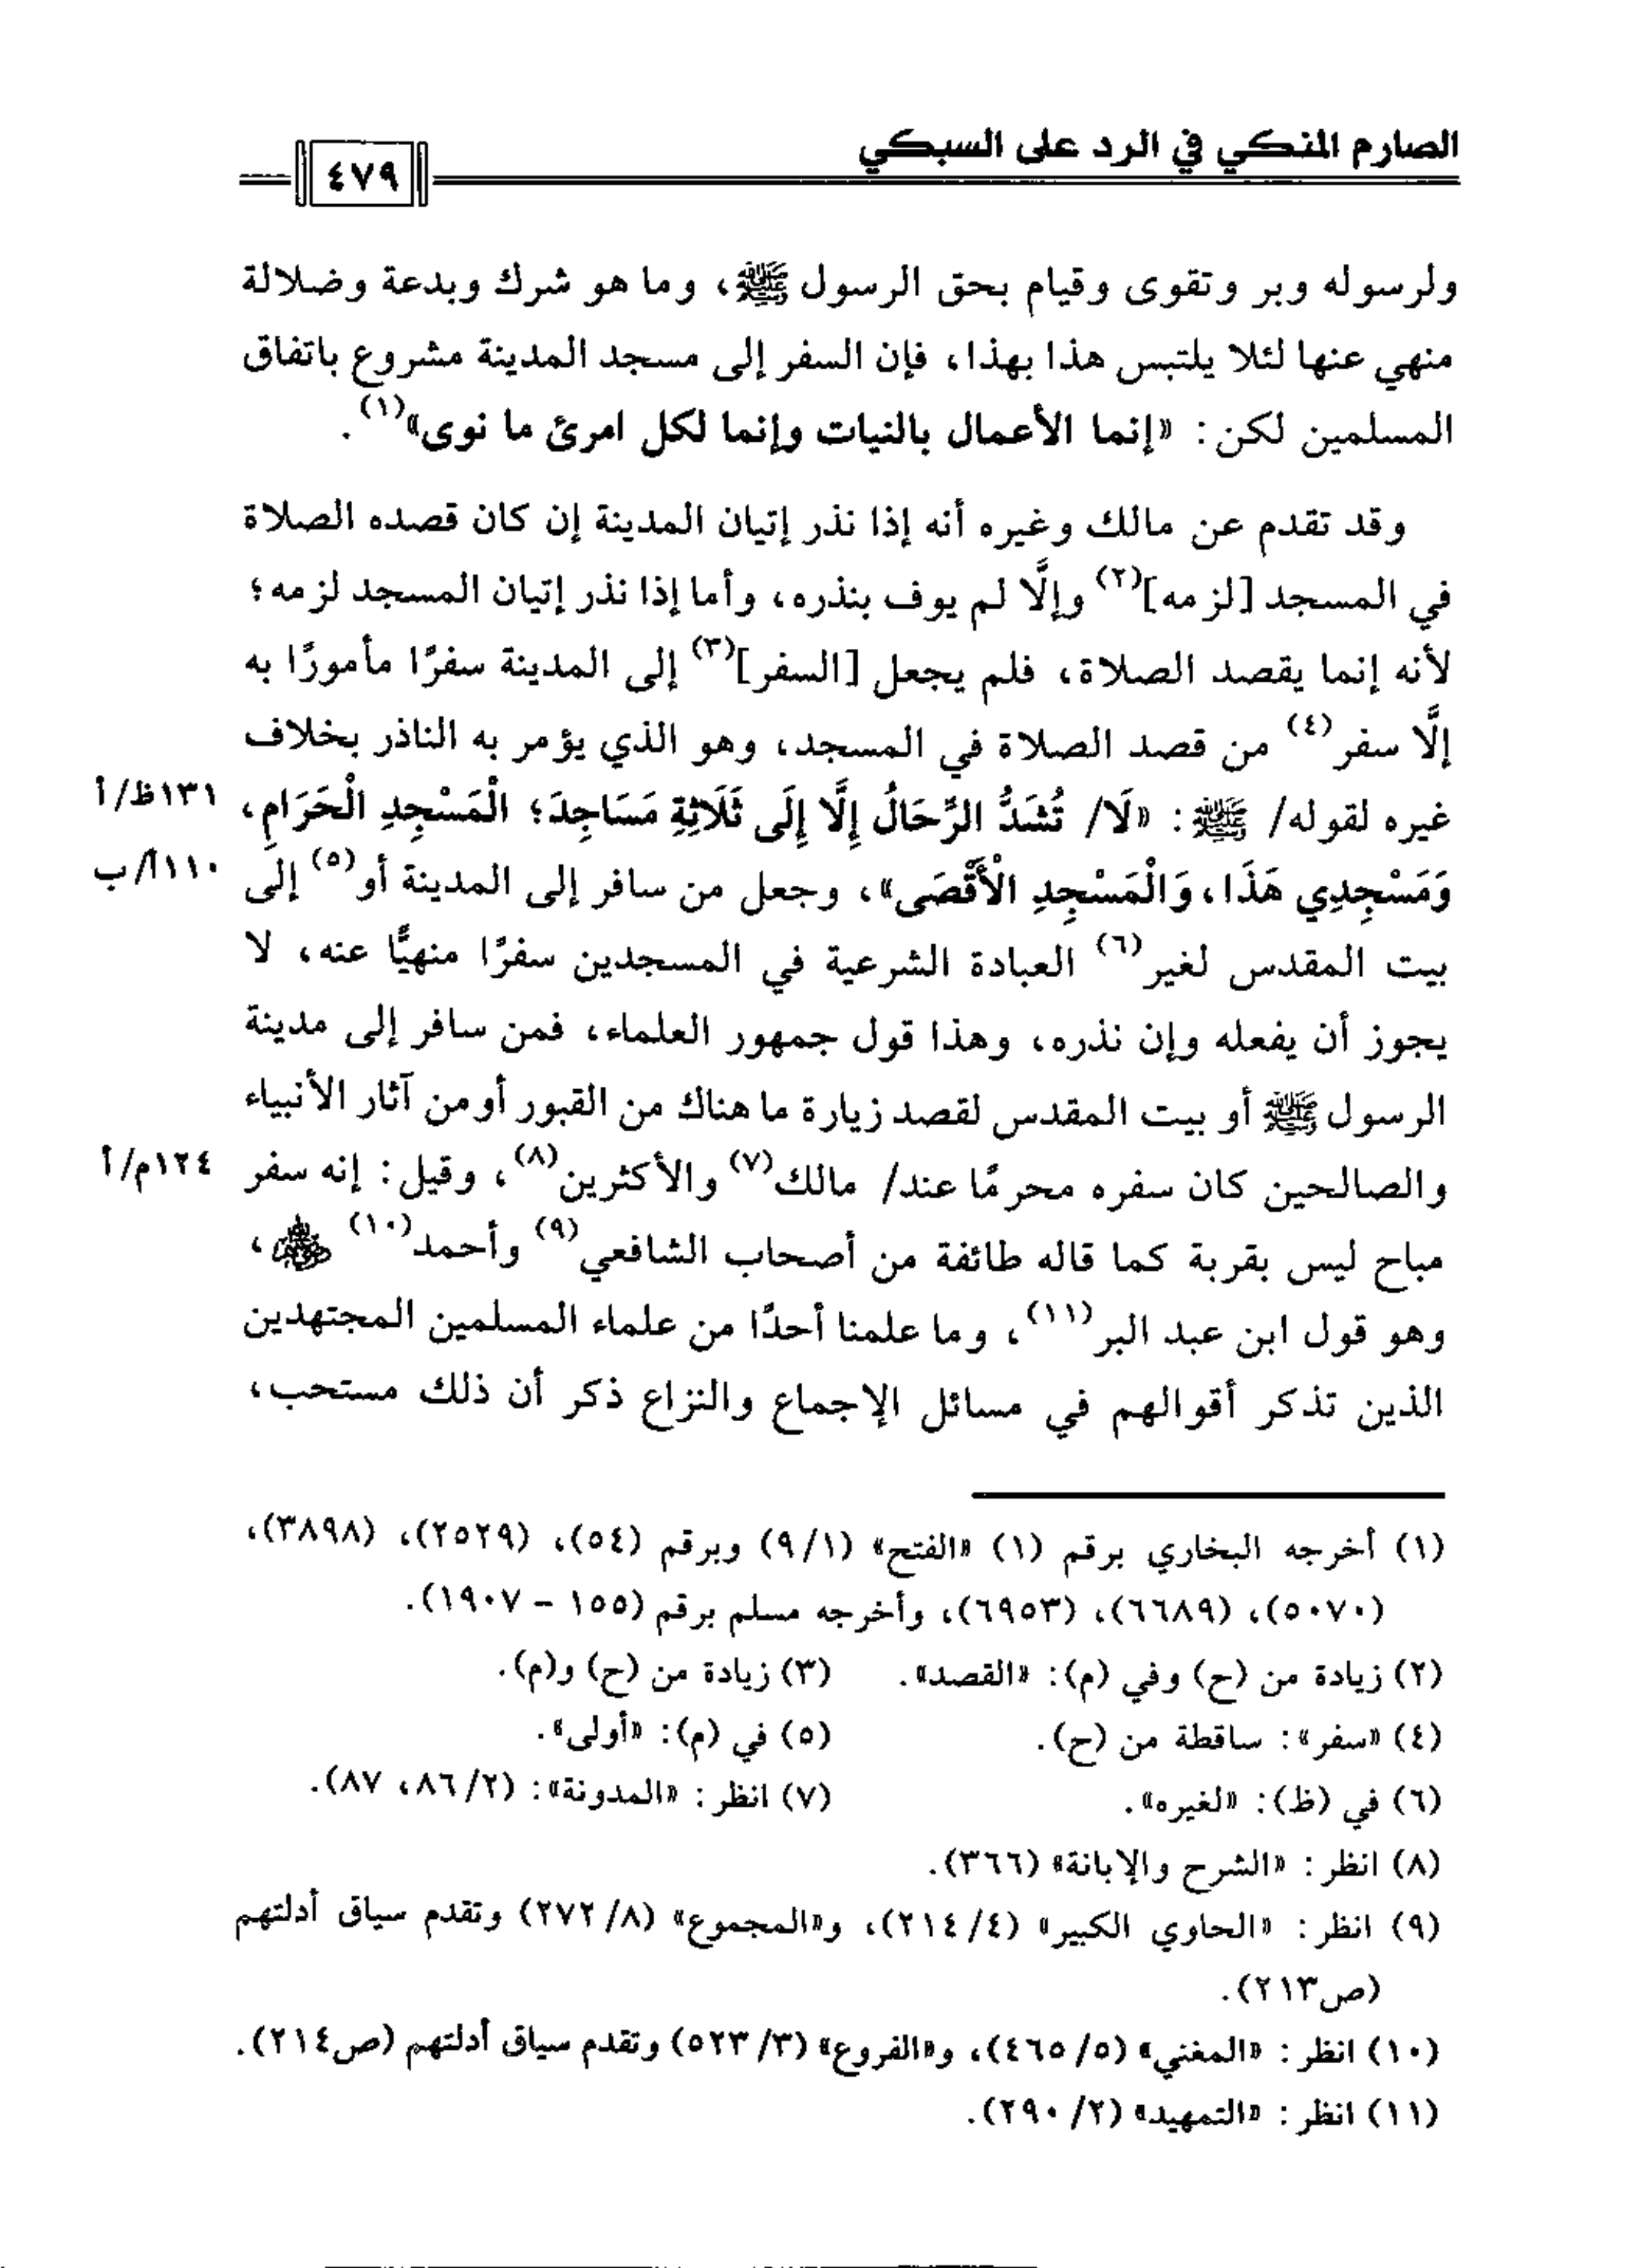 الصارم المنكي في الرد على السبكي
٤٧٩
ولرسوله وبر وتقوى وقيام بحق الرسول ﷺ، وما هو شرك وبدعة وضلالة
منهي عنها لئلا يلتبس هذا بهذا، فإن السفر إلى مسجد المدينة مشروع باتفاق
المسلمين لكن: «إنما الأعمال بالنيات وإنما لكل امرئ ما نوى»(١).
وقد تقدم عن مالك وغيره أنه إذا نذر إتيان المدينة إن كان قصده الصلاة
في المسجد [لزمه](٢) وإلَّا لم يوف بنذره، وأما إذا نذر إتيان المسجد لزمه؛
لأنه إنما يقصد الصلاة، فلم يجعل [السفر](٣) إلى المدينة سفرًا مأمورًا به
إلَّا سفر(٤) من قصد الصلاة في المسجد، وهو الذي يؤمر به الناذر بخلاف
غيره لقوله/ ﷺ: «لَا/ تُشَدُّ الرِّحَالُ إِلَّا إِلَى ثَلَاثِةِ مَسَاجِدَ؛ الْمَسْجِدِ الْحَرَامِ، ١٣١ظ/أ
وَمَسْجِدِي هَذَا، وَالْمَسْجِدِ الْأَقْصَى»، وجعل من سافر إلى المدينة أو(٥) إلى ١١٠أ/ب
بيت المقدس لغير(٦) العبادة الشرعية في المسجدين سفرًا منهيًّا عنه، لا
يجوز أن يفعله وإن نذره، وهذا قول جمهور العلماء، فمن سافر إلى مدينة
الرسول ﷺ أو بيت المقدس لقصد زيارة ما هناك من القبور أو من آثار الأنبياء
والصالحين كان سفره محرمًا عند/ مالك(٧) والأكثرين(٨)، وقيل: إنه سفر ١٢٤م/أ
مباح ليس بقربة كما قاله طائفة من أصحاب الشافعي(٩) وأحمد(١٠) ،
وهو قول ابن عبد البر(١١)، وما علمنا أحدًا من علماء المسلمين المجتهدين
الذين تذكر أقوالهم في مسائل الإجماع والنزاع ذكر أن ذلك مستحب،
(١) أخرجه البخاري برقم (١) «الفتح» (٩/١) وبرقم (٥٤)، (٢٥٢٩)، (٣٨٩٨)،
(٥٠٧٠)، (٦٦٨٩)، (٦٩٥٣)، وأخرجه مسلم برقم (١٥٥ - ١٩٠٧).
(٢) زيادة من (ح) وفي (م): «القصد». (٣) زيادة من (ح) و(م).
(٤) «سفر»: ساقطة من (ح). (٥) في (م): «أولى».
(٦) في (ظ): «لغيره». (٧) انظر: «المدونة»: (٨٦/٢، ٨٧).
(٨) انظر: «الشرح والإبانة» (٣٦٦).
(٩) انظر: «الحاوي الكبير» (٢١٤/٤)، و«المجموع» (٢٧٢/٨) وتقدم سياق أدلتهم
(ص٢١٣).
(١٠) انظر: «المغني» (٤٦٥/٥)، و«الفروع» (٥٢٣/٣) وتقدم سياق أدلتهم (ص٢١٤).
(١١) انظر: «التمهيد» (٢٩٠/٢).